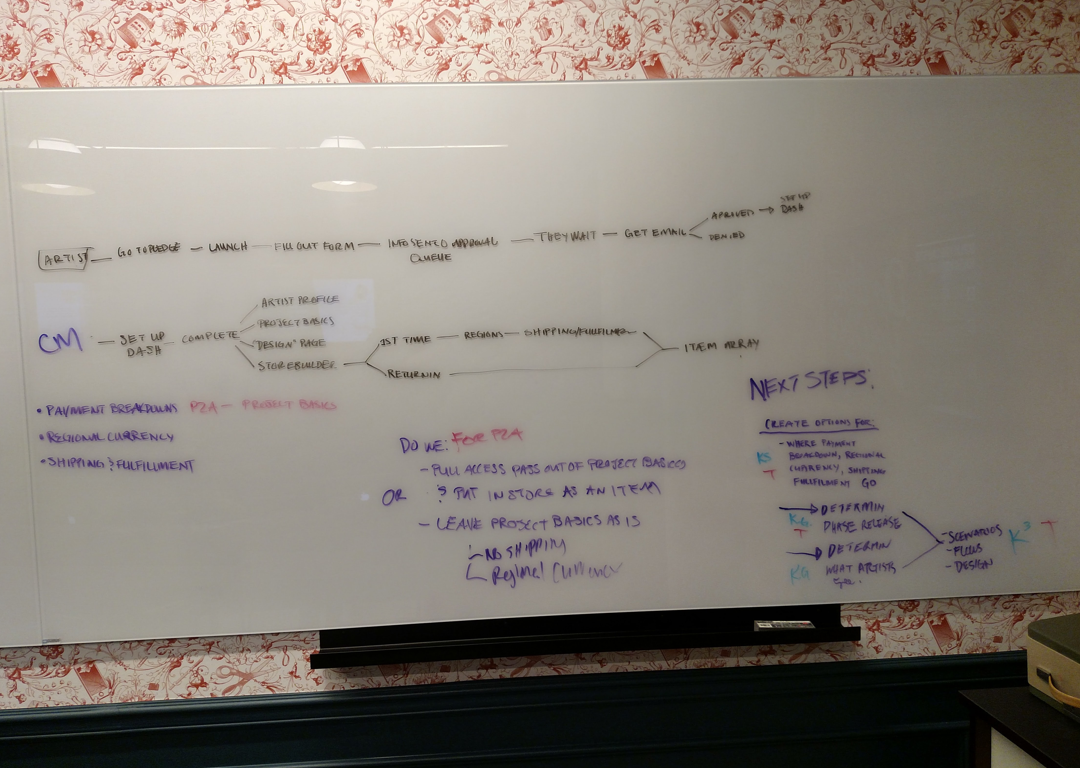 ARTIST — GO TO PLEDGE — LAUNCH — FILL OUT FORM — INFO SENT TO APPROVAL QUEUE — THEY WAIT — GET EMAIL
APROVED → SET UP DASH
DENIED
CM — SET UP DASH — COMPLETE
ARTIST PROFILE
PROJECT BASICS
"DESIGN" PAGE
STOREBUILDER
1ST TIME — REGIONS — SHIPPING/FULFILLMENT
RETURNIN
ITEM ARRAY
• PAYMENT BREAKDOWNS P2A — PROJECT BASICS
• REGIONAL CURRENCY
• SHIPPING & FULFILLMENT
DO WE: FOR P2A
- PULL ACCESS PASS OUT OF PROJECT BASICS
OR & PUT IN STORE AS AN ITEM
- LEAVE PROJECT BASICS AS IS
- NO SHIPPING
- Regional Currency
NEXT STEPS:
CREATE OPTIONS FOR:
- WHERE PAYMENT
KS BREAKDOWN, REGIONAL
T CURRENCY, SHIPPING
FULFILLMENT GO
→ DETERMIN
KG PHASE RELEASE
T
→ DETERMIN
KG WHAT ARTISTS
- SCENARIOS
- FLOWS
- DESIGN
K³ T